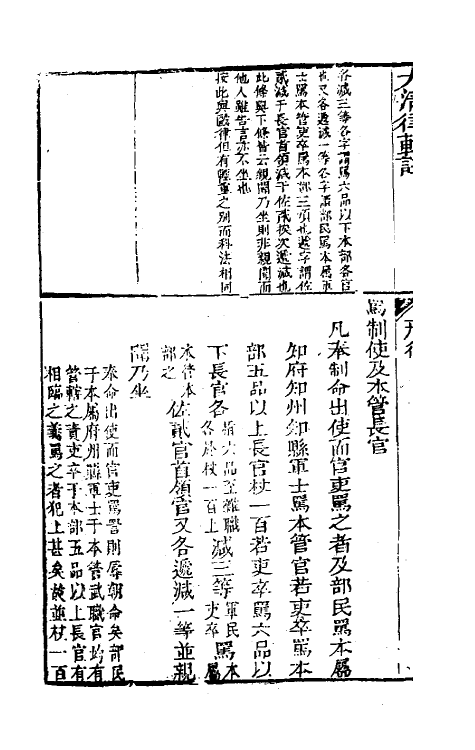 大清律輯註
刑律
各減三等各字謂罵六品以下本部各官
也又各遞減一等各字謂部民罵本屬軍
士罵本管吏卒罵本部三項也遞字謂佐
貳減于長官首領減于佐貳挨次遞減也
此條與下條皆云親聞乃坐則非親聞而
他人雖告言亦不坐也
按此與毆律但有輕重之別而科法相同
罵制使及本管長官
凡奉制命出使而官吏罵之者及部民罵本屬
知府知州知縣軍士罵本管官若吏卒罵本
部五品以上長官杖一百若吏卒罵六品以
下長官各指六品至雜職
各於杖一百上減三等軍民
吏卒罵本
屬
本管本
部之佐貳官首領官又各遞減一等並親
聞乃坐
奉命出使而官吏罵詈則辱朝命矣部民
于本屬府州縣軍士于本管武職官均有
管轄之責吏卒于本部五品以上長官有
相臨之義罵之者犯上甚矣故並杖一百